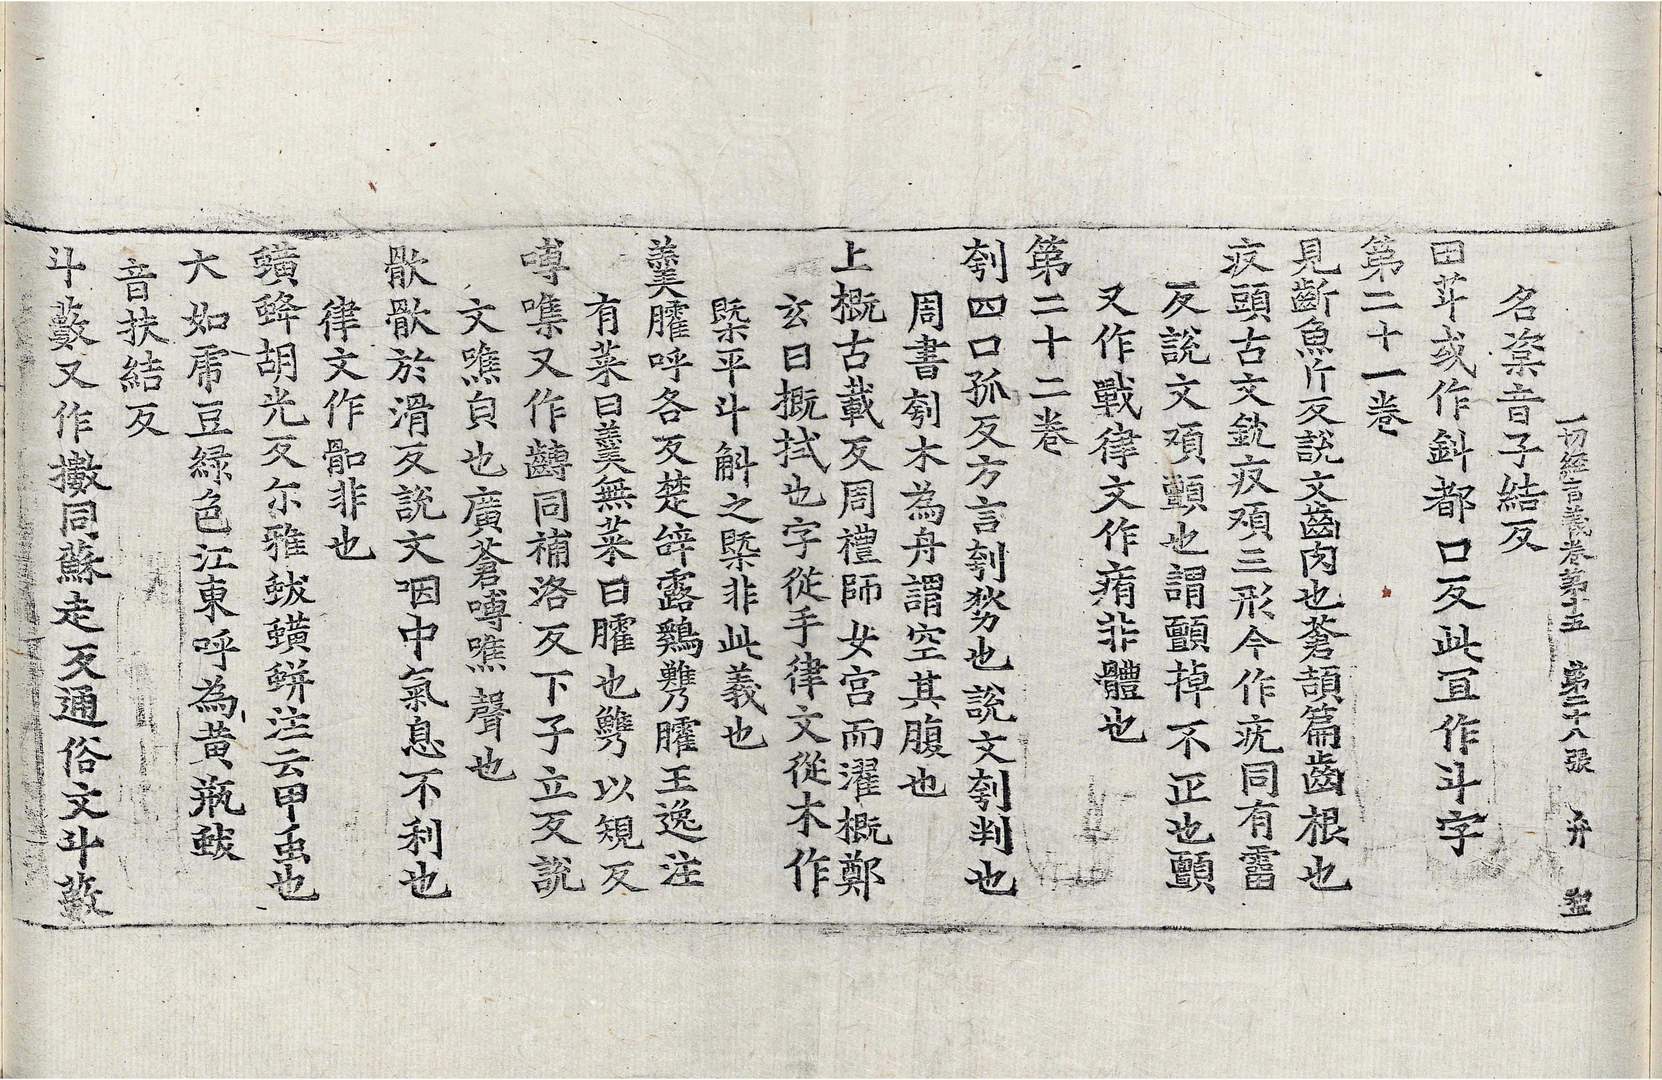 一切經音義卷第十五 第二十八張 弁
名楶音子結反
田㪷或作斜都口反此宜作斗字
第二十一卷
見齗魚斤反說文齒肉也蒼頡篇齒根也
疚頭古文䪻疚頄三形今作疣同有霤
反說文頄顫也謂顫掉不正也顫
又作戰律文作痏非體也
第二十二卷
刳四口孤反方言刳㓼也說文刳判也
周書刳木為舟謂空其腹也
上概古載反周禮師女宮而濯概鄭
玄曰概拭也字從手律文從木作
槩平斗斛之槩非此義也
羹臛呼各反楚辞露鷄臛王逸注
有菜曰羹無菜曰臛也以規反
嗗㗱又作齺同補洛反下子立反說
文噍皃也廣蒼嗗噍聲也
骰骰於滑反說文咽中氣息不利也
律文作骨非也
蟥蜂胡光反尒雅蛂蟥蛢注云甲虫也
大如虎豆緑色江東呼為黃瓶蛂
音扶結反
斗藪又作擻同蘇走反通俗文斗藪